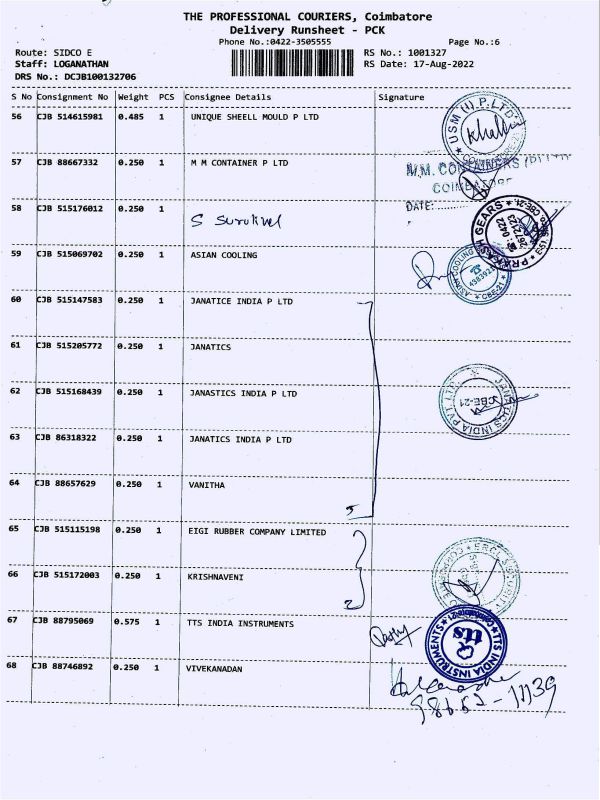 THE PROFESSIONAL COURIERS, Coimbatore
Delivery Runsheet - PCK
Phone No.:0422-3505555 Page No.:6
Route: SIDCO E RS No.: 1001327
Staff: LOGANATHAN RS Date: 17-Aug-2022
DRS No.: DCJB100132706
S No Consignment No Weight PCS Consignee Details Signature
56 CJB 514615981 0.485 1 UNIQUE SHEELL MOULD P LTD
USM (I) P. LTD
57 CJB 88667332 0.250 1 M M CONTAINER P LTD
M.M. CONTAINERS
COIMBATORE
DATE:
58 CJB 515176012 0.250 1
PRAKASH GEARS
59 CJB 515069702 0.250 1 ASIAN COOLING
ASIAN COOLING CBE-21
60 CJB 515147583 0.250 1 JANATICE INDIA P LTD
61 CJB 515205772 0.250 1 JANATICS
62 CJB 515168439 0.250 1 JANASTICS INDIA P LTD
JANATICS INDIA PVT. LTD. CBE-21
63 CJB 86318322 0.250 1 JANATICS INDIA P LTD
64 CJB 88657629 0.250 1 VANITHA
5
65 CJB 515115198 0.250 1 EIGI RUBBER COMPANY LIMITED
66 CJB 515172003 0.250 1 KRISHNAVENI
2
67 CJB 88795069 0.575 1 TTS INDIA INSTRUMENTS
TTS INDIA INSTRUMENTS tts
68 CJB 88746892 0.250 1 VIVEKANADAN